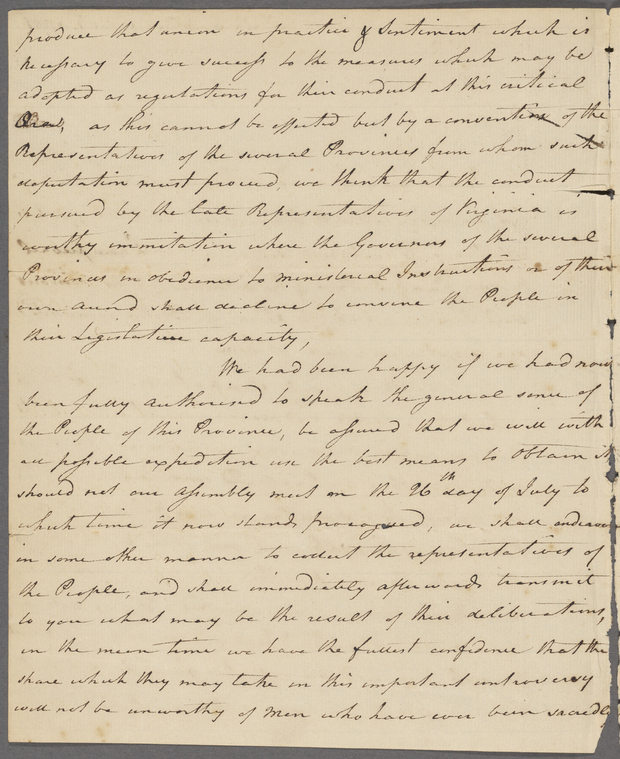 produce that union in practice & Sentiment which is
necessary to give success to the measures which may be
adopted as regulations for their conduct at this critical
as this cannot be effected but by a convention of the
Representatives of the several Provinces from whom such
deputation must proceed, we think that the conduct
pursued by the late Representatives of Virginia is
worthy immitation where the Governors of the several
Provinces in obedience to ministerial Instructions or of their
own accord shall decline to convene the People in
their Legislative capacity,
We had been happy if we had now
been fully authorised to speak the general sense of
the People of this Province, be assured that we will with
all possible expedition use the best means to obtain it
should not our Assembly meet on the 26th day of July to
which time it now stands prorogued, we shall endeavor
in some other manner to collect the representatives of
the People, and shall immediately afterwards transmit
to you what may be the result of their deliberations,
in the mean time we have the fullest confidence that the
share which they may take in this important controversy
will not be unworthy of Men who have ever been sacredly